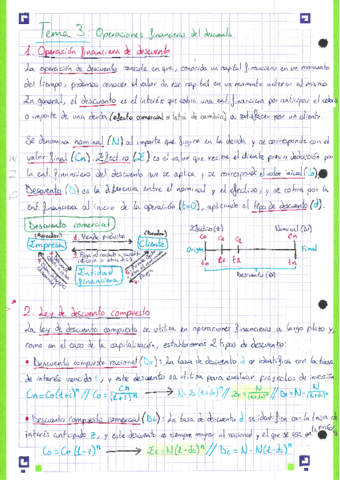 Tema 3: Operaciones financieras del descuento
1. Operación financiera de descuento
La operación de descuento consiste en que, conocido un capital financiero en un momento
del tiempo, podemos conocer el valor de ese capital en un momento anterior al mismo.
En general, el descuento es el interés que cobra una ent. financiera por anticipar el cobro
o importe de una deuda (efecto comercial o letra de cambio) a satisfacer por un cliente.
Se denomina nominal (N) al importe que figura en la deuda, y se corresponde con el
valor final (Cn). Efectivo (E) es el valor que recibe el cliente previa deducción por
la ent. financiera del descuento que se aplica, y se corresponde el valor inicial (Co)
Descuento (D) es la diferencia entre el nominal y el efectivo, y se cobra por la
ent. financiera al inicio de la operación (t=0), aplicando el tipo de descuento (d).
Descuento comercial
Efectivo (E) Nominal (N)
Empresa 1. Vende producto Cliente
Co C1 C2 Cn
Origen Final
to t1 t2 tn
Entidad financiera
Descuento (D)
2. Ley de descuento compuesto
La ley de descuento compuesto se utiliza en operaciones financieras a largo plazo y,
como en el caso de la capitalización, establecemos 2 tipos de descuento:
• Descuento compuesto racional (Dr): La tasa de descuento d se identifica con la tasa
de interés vencido i, y este descuento se utiliza para evaluar proyectos de inversión
• Descuento compuesto comercial (Dc): La tasa de descuento d se identifica con la tasa de
interés anticipado z, y este descuento es siempre mayor al racional, y el que se usa en la práctica